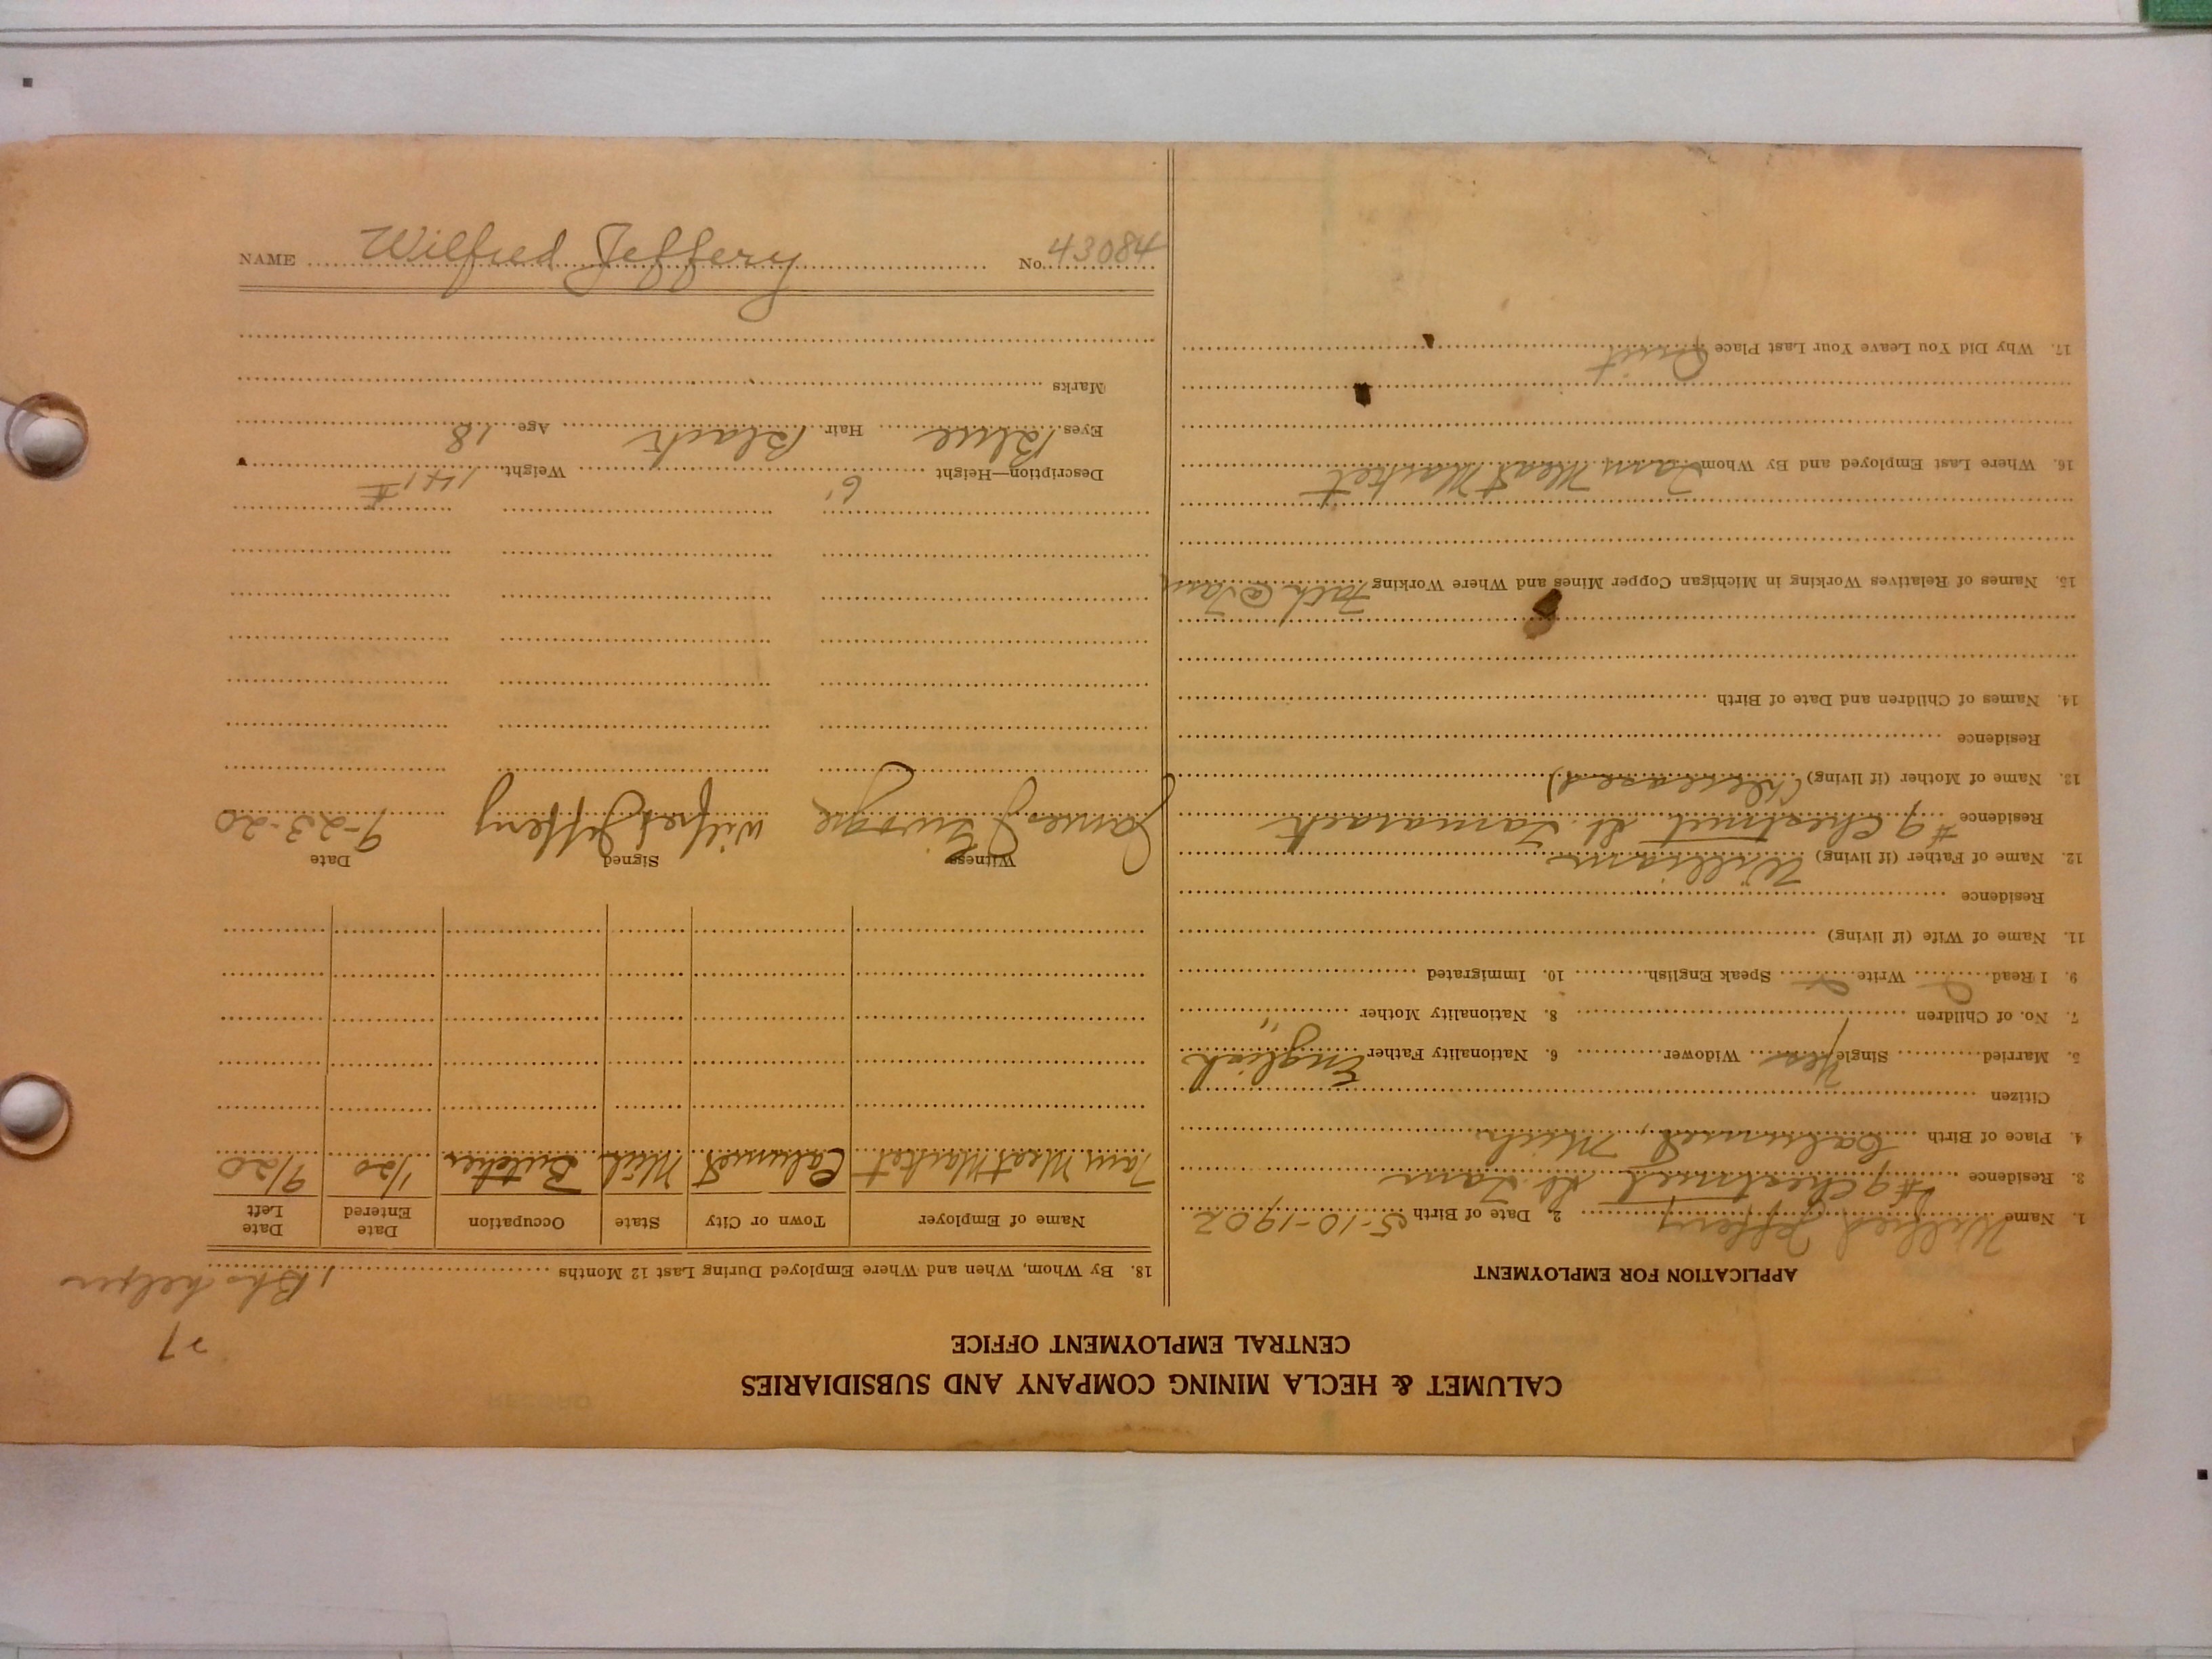 CALUMET & HECLA MINING COMPANY AND SUBSIDIARIES
CENTRAL EMPLOYMENT OFFICE
APPLICATION FOR EMPLOYMENT
1. Name Wilfred Jeffery 2. Date of Birth 5-10-1902
3. Residence #9 Chestnut St Tam
4. Place of Birth Calumet, Mich.
Citizen
5. Married Single Yes Widower 6. Nationality Father English
7. No. of Children 8. Nationality Mother "
9. I Read Write Speak English 10. Immigrated
11. Name of Wife (if living)
Residence
12. Name of Father (if living) William
Residence #9 Chestnut St. Tamarack
13. Name of Mother (if living) (Deceased)
Residence
14. Names of Children and Date of Birth
15. Names of Relatives Working in Michigan Copper Mines and Where Working Fath @ Tam
16. Where Last Employed and By Whom Tam Meat Market
17. Why Did You Leave Your Last Place Quit
helper
18. By Whom, When and Where Employed During Last 12 Months
Name of Employer Town or City State Occupation Date Entered Date Left
Tam Meat Market Calumet Mich Butcher 1/20 9/20
Witness Signed Date
James Wilfred Jeffery 9-23-20
Description—Height 6' Weight 141 #
Eyes Blue Hair Black Age 18
Marks
NAME Wilfred Jeffery No. 43084